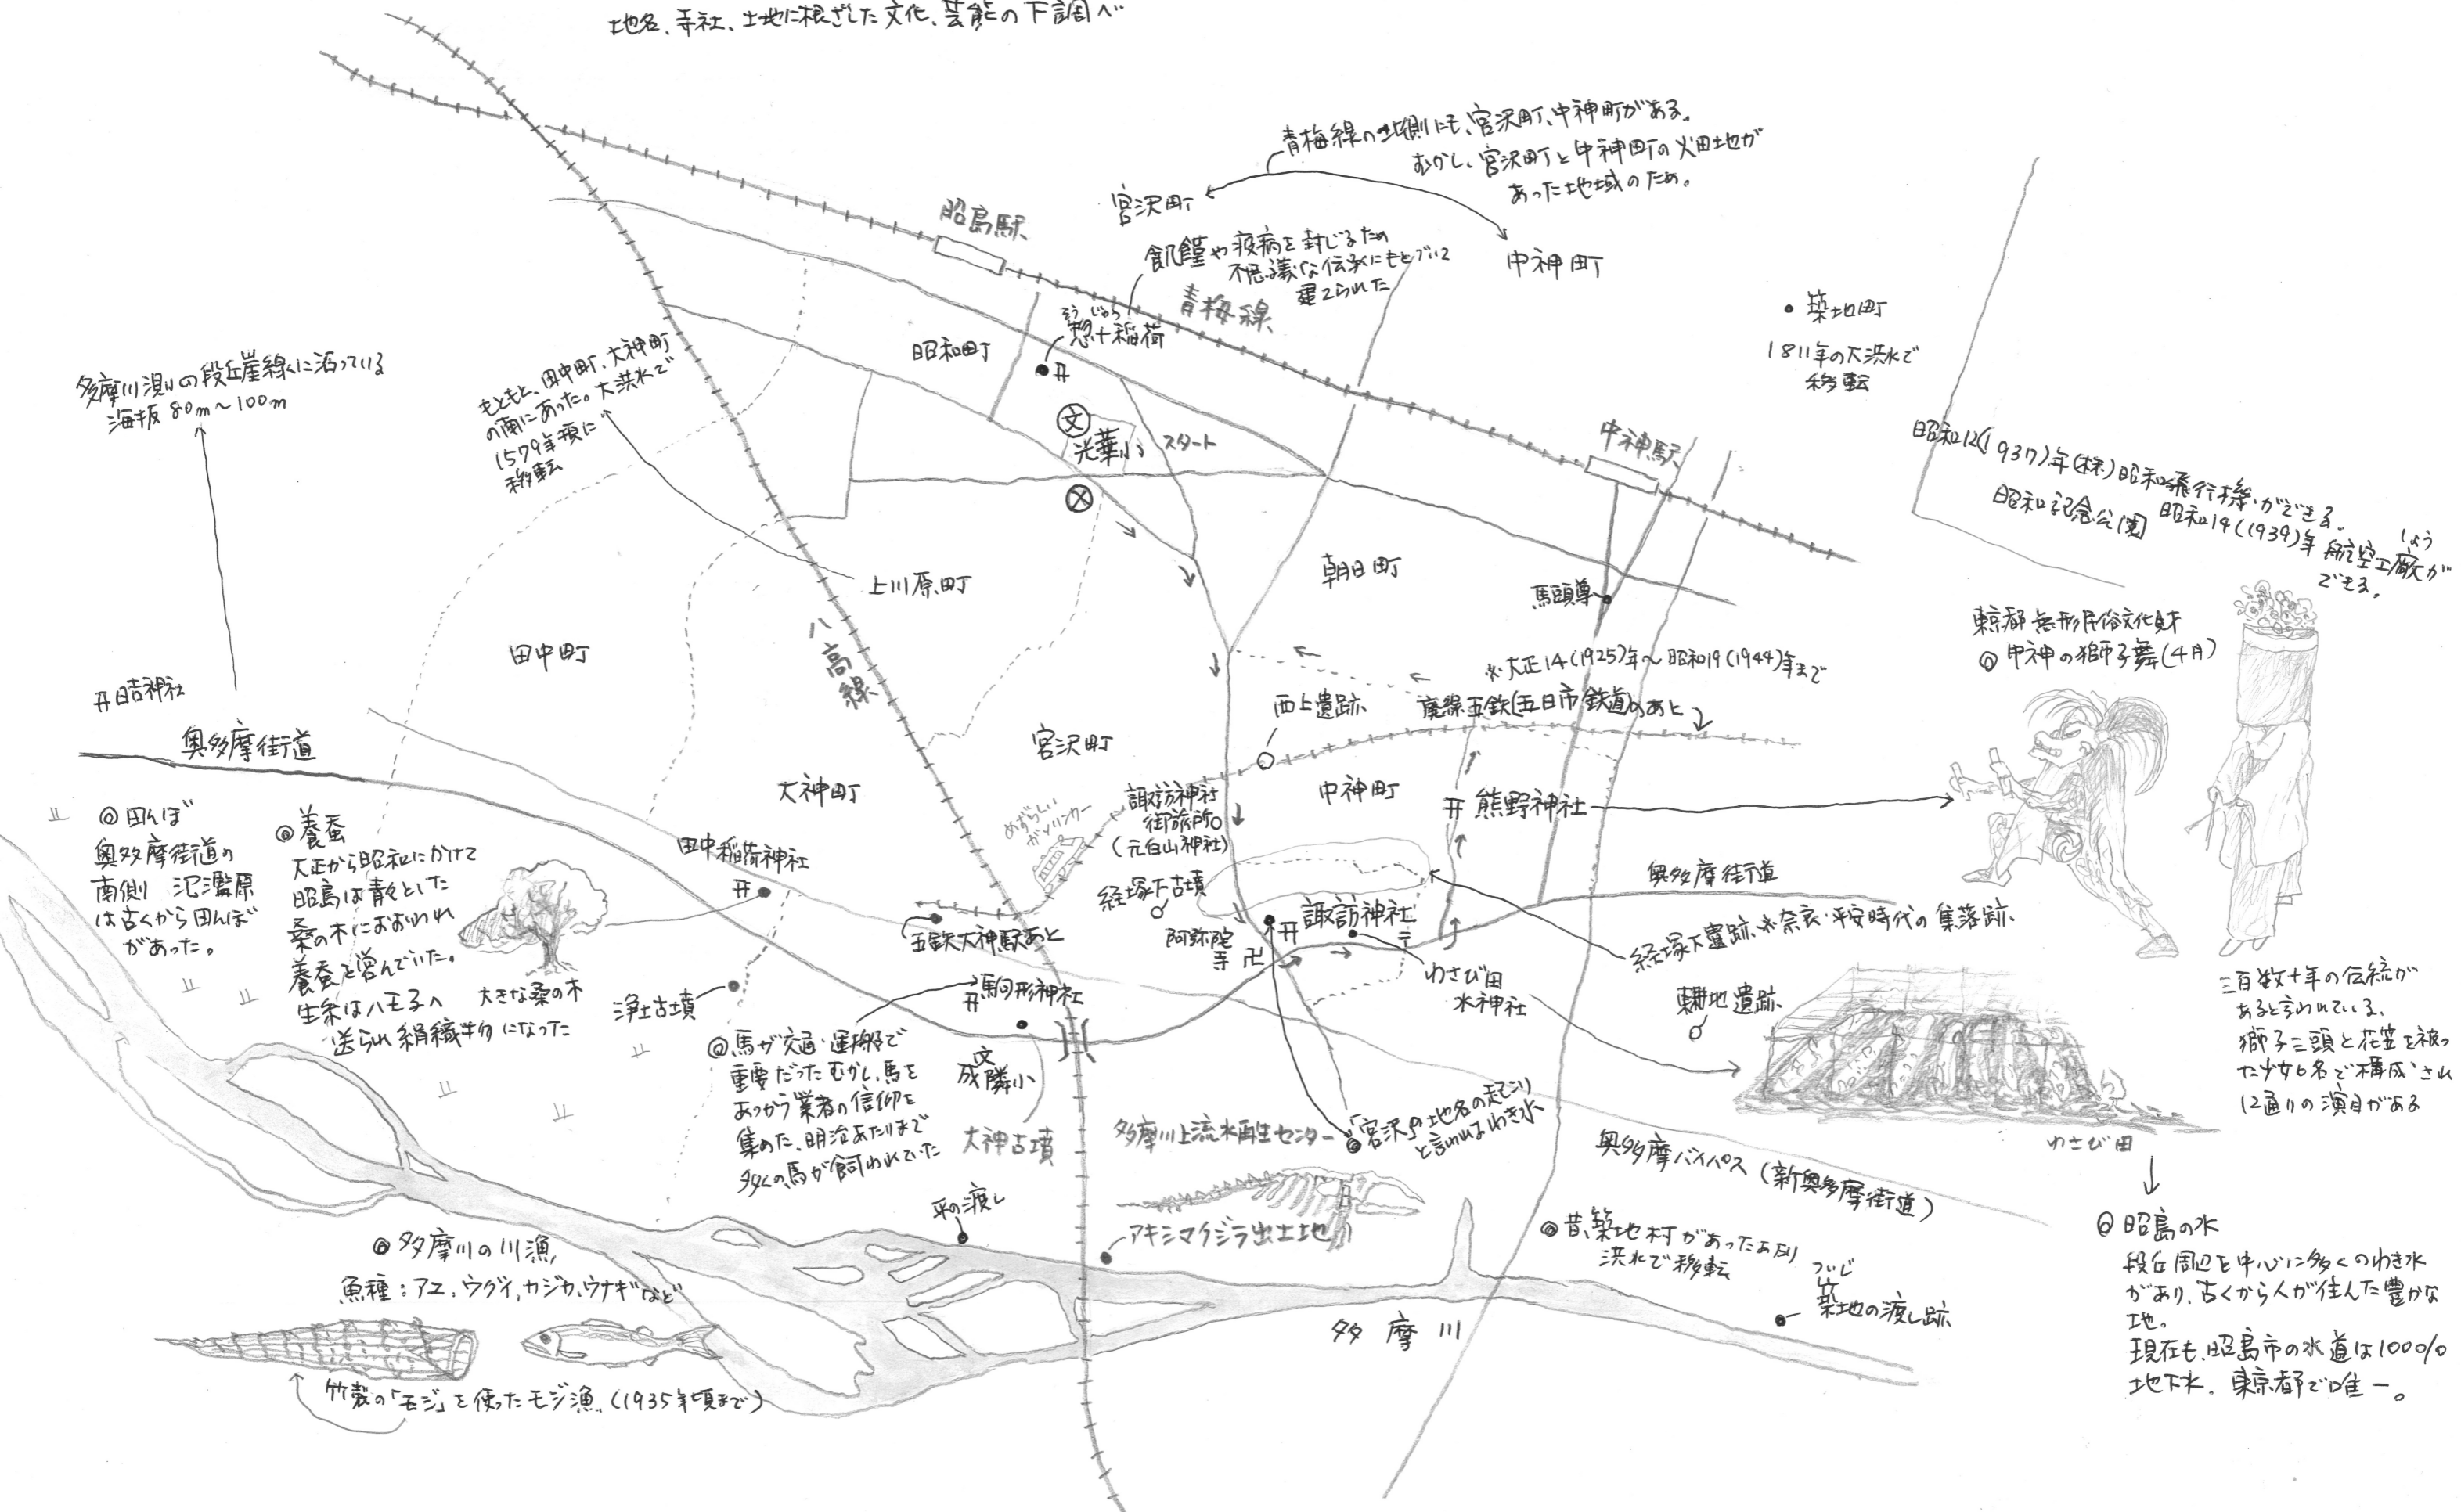 地名、寺社、土地に根ざした文化、芸能の下調べ
青梅線の北側にも、宮沢町、中神町がある。
むかし、宮沢町と中神町の畑地が
あった地域のため。
宮沢町
中神町
昭島駅
飢饉や疫病を封じるため
不思議な伝承にもとづいて
建てられた
青梅線
そうじゅう
惣十稲荷
昭和町
築地町
1811年の大洪水で
移転
多摩川沿いの段丘崖線に沿っている
海抜80m〜100m
もともと、田中町、大神町
の南にあった。大洪水で
1579年頃に
移転
文
光華小
スタート
中神駅
昭和12(1937)年(株)昭和飛行機ができる。
昭和記念公園
昭和14(1939)年航空工廠が
しょう
できる。
上川原町
朝日町
馬頭尊
東京都無形民俗文化財
◎中神の獅子舞(4月)
田中町
八高線
※大正14(1925)年〜昭和19(1944)年まで
廃線五鉄(五日市鉄道)のあと
西上遺跡
日吉神社
奥多摩街道
宮沢町
大神町
諏訪神社
御旅所
(元白山神社)
中神町
熊野神社
めずらしい
ガソリンカー
◎田んぼ
奥多摩街道の
南側 氾濫原
は古くから田んぼ
があった。
◎養蚕
大正から昭和にかけて
昭島は青々とした
桑の木におおわれ
養蚕を営んでいた。
生糸は八王子へ
送られ絹織物になった
大きな桑の木
田中稲荷神社
経塚下古墳
奥多摩街道
五鉄大神駅あと
阿弥陀寺
卍
諏訪神社
経塚下遺跡※奈良・平安時代の集落跡
わさび田
水神社
浄土古墳
駒形神社
◎馬が交通・運搬で
重要だったむかし、馬を
あつかう業者の信仰を
集めた、明治あたりまで
多くの馬が飼われていた
文
成隣小
大神古墳
多摩川上流水再生センター
◎「宮沢」の地名の起こり
と言われるわき水
わさび田
三百数十年の伝統が
あると言われている。
獅子三頭と花笠を被っ
た少女6名で構成され
12通りの演目がある
奥多摩バイパス(新奥多摩街道)
平の渡し
アキシマクジラ出土地
◎昔、築地村があったあたり
洪水で移転
ついじ
築地の渡し跡
◎多摩川の川漁
魚種:アユ、ウグイ、カジカ、ウナギなど
竹製の「モジ」を使ったモジ漁(1935年頃まで)
多摩川
◎昭島の水
段丘周辺を中心に多くのわき水
があり、古くから人が住んだ豊かな
地。
現在も、昭島市の水道は100%
地下水。東京都で唯一。